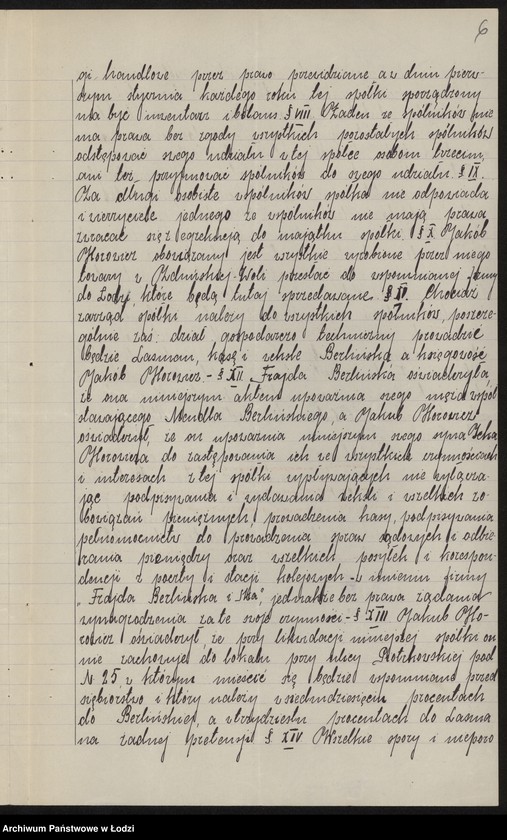 6
gi handlowe przez prawo przewidziane a w dniu pierw-
szym stycznia każdego roku tej spółki sporządzony
ma być inwentarz i bilans. § VIII Żaden ze spólników nie
ma prawa bez zgody wszystkich pozostałych spólników
odstępować swego udziału w tej spółce osobom trzecim,
ani też przyjmować spólników do swego udziału. § IX.
Za długi osobiste wspólników spółka nie odpowiada
i wierzyciele jednego ze wspólników nie mają prawa
zwracać się z egzekucją do majątku spółki. § X Jakób
Horowicz obowiązany jest wszystkie wyrobione przez niego
towary w Zduńskiej-Woli przesłać do wspomnianej firmy
do Łodzi, które będą tutaj sprzedawane. § XI. Chociaż
zarząd spółki należy do wszystkich spólników, poszcze-
gólnie zaś: dział gospodarczo techniczny prowadzić
będzie Lasman, kasę i weksle Berlińska a księgowość
Jakób Horowicz. - § XII Frajda Berlińska oświadczyła,
że ona niniejszym aktem upoważnia swego męża współ
stawającego Mendla Berlińskiego, a Jakub Horowicz
oświadczył, że on upoważnia niniejszym swego syna Icka
Horowicza do zastępowania ich we wszystkich czynnościach
i interesach z tej spółki wypływających nie wyłącza-
jąc podpisywania i wydawania weksli i wszelkich zo-
bowiązań pieniężnych, prowadzenia kasy, podpisywania
pełnomocnictw do prowadzenia spraw sądowych i odbie-
rania pieniędzy oraz wszelkich posyłek i korespon-
dencji z poczty i stacji kolejowych - w imieniu firmy
„Frajda Berlińska i S-ka", jednakże bez prawa żądania
wynagrodzenia za te swoje czynności - § XIII Jakub Ho-
rowicz oświadczył, że przy likwidacji niniejszej spółki on
nie zachowuje do lokalu przy ulicy Piotrkowskiej pod
N 25, w którym mieścić się będzie wspomniane przed
siębiorstwo i który należy w siedmdziesięciu procentach
do Berlińskiej, a w trzydziestu procentach do Lasmana
na żadnej pretensji § XIV Wszelkie spory i nieporo
Archiwum Państwowe w Łodzi